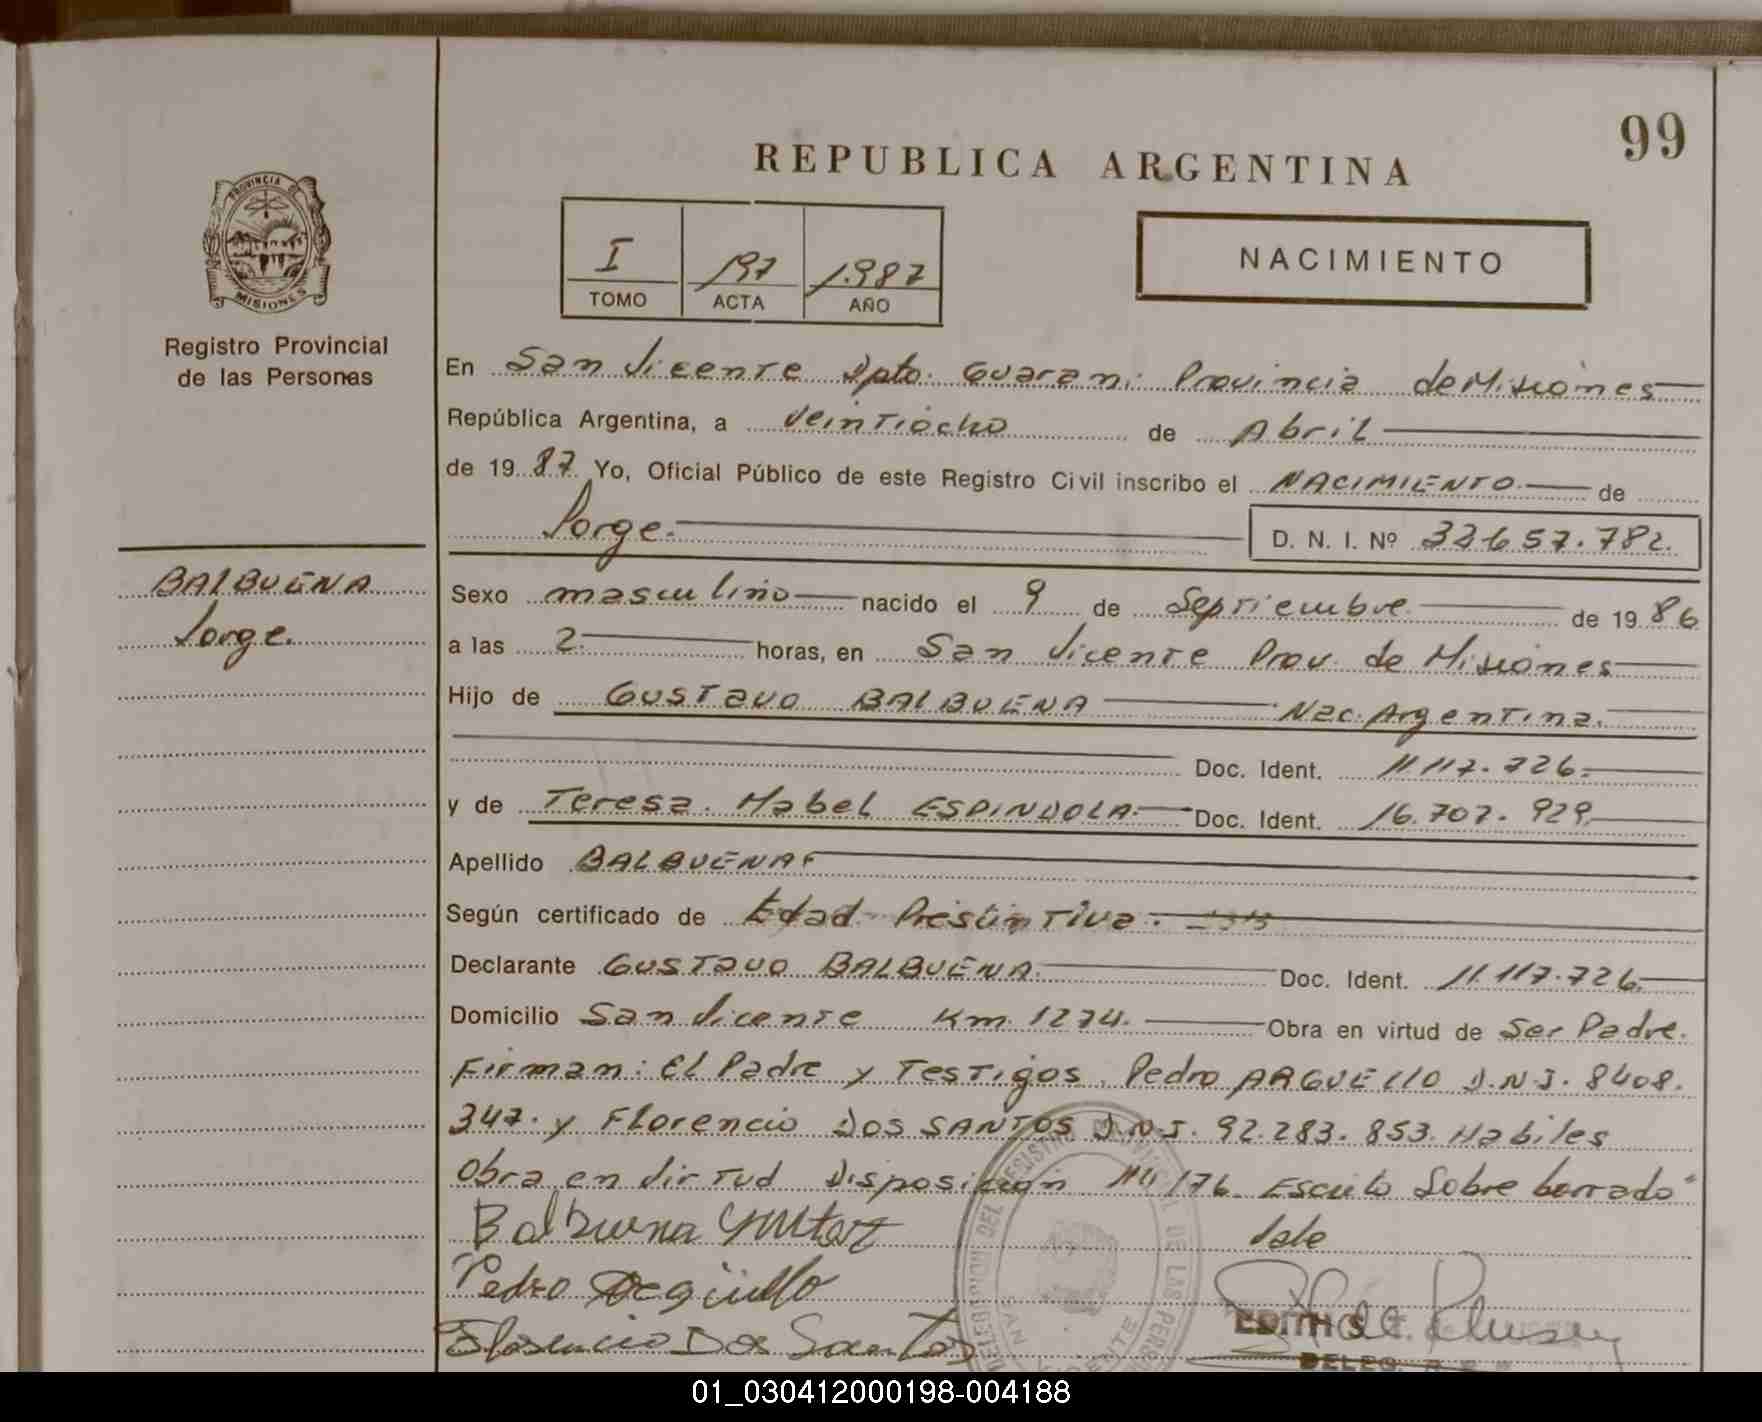 99
REPUBLICA ARGENTINA
PROVINCIA DE
MISIONES
I 197 1.987
TOMO ACTA AÑO
NACIMIENTO
Registro Provincial
de las Personas
En San Vicente Dpto. Guarani Provincia de Misiones
República Argentina, a Veintiocho de Abril
de 19 87 Yo, Oficial Público de este Registro Civil inscribo el NACIMIENTO de
Jorge. D. N. I. Nº 32.657.782.
BALBUENA
Jorge.
Sexo masculino nacido el 9 de Septiembre de 19 86
a las 2. horas, en San Vicente Prov. de Misiones
Hijo de GUSTavo BALBUENA Nac. Argentina.
Doc. Ident. 11.117.726.
y de Teresa Mabel ESPINDOLA. Doc. Ident. 16.707.929.
Apellido BALBUENA
Según certificado de Edad Presuntiva.
Declarante GUSTavo BALBUENA. Doc. Ident. 11.117.726.
Domicilio San Vicente Km 1274. Obra en virtud de Ser Padre.
Firman: El Padre y Testigos. Pedro ARGUELLO D.N.I. 8408.
347. y Florencio DOS SANTOS D.N.I. 92.283.853. Habiles
Obra en Virtud Disposición /76. Escrito Sobre borrado"
Vale
Balbuena
Pedro Argüello
Florencio Dos Santos
DELEGACION DEL REGISTRO PROVINCIAL DE LAS PERS
SAN VICENTE
EDITH S.
DELEG.
01_030412000198-004188